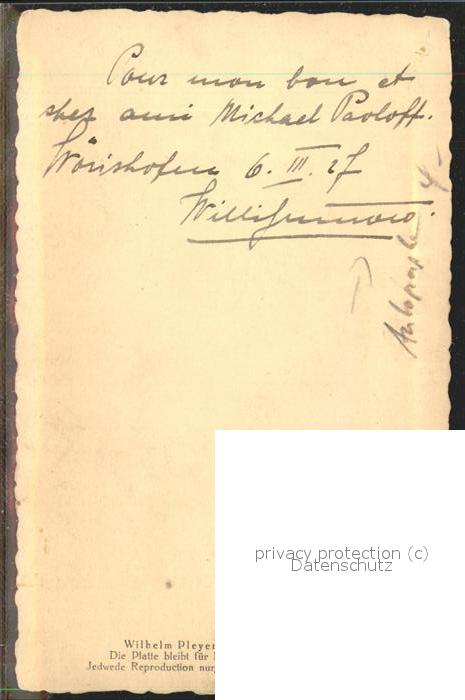 Pour mon bon et
cher ami Michael Pavloff.
Wörishofen 6. III. 27
Willi
Autographe
privacy protection (c)
Datenschutz
Wilhelm Pleyer
Die Platte bleibt für
Jedwede Reproduction nur